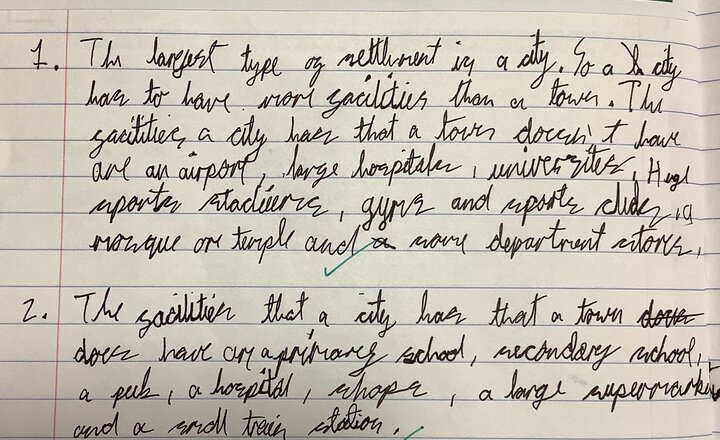 1. The largest type of settlment is a city. So a city
has to have more facilities than a town. The
facilities a city has that a town doesn't have
are an airport, large hospitals, universites, Huge
sports stadiums, gyms and sports clubs, a
mosque or temple and some department stores.
2. The facilities that a city has that a town does
does have are a primary school, secondary school,
a pub, a hospital, shops, a large supermarket
and a small train station.